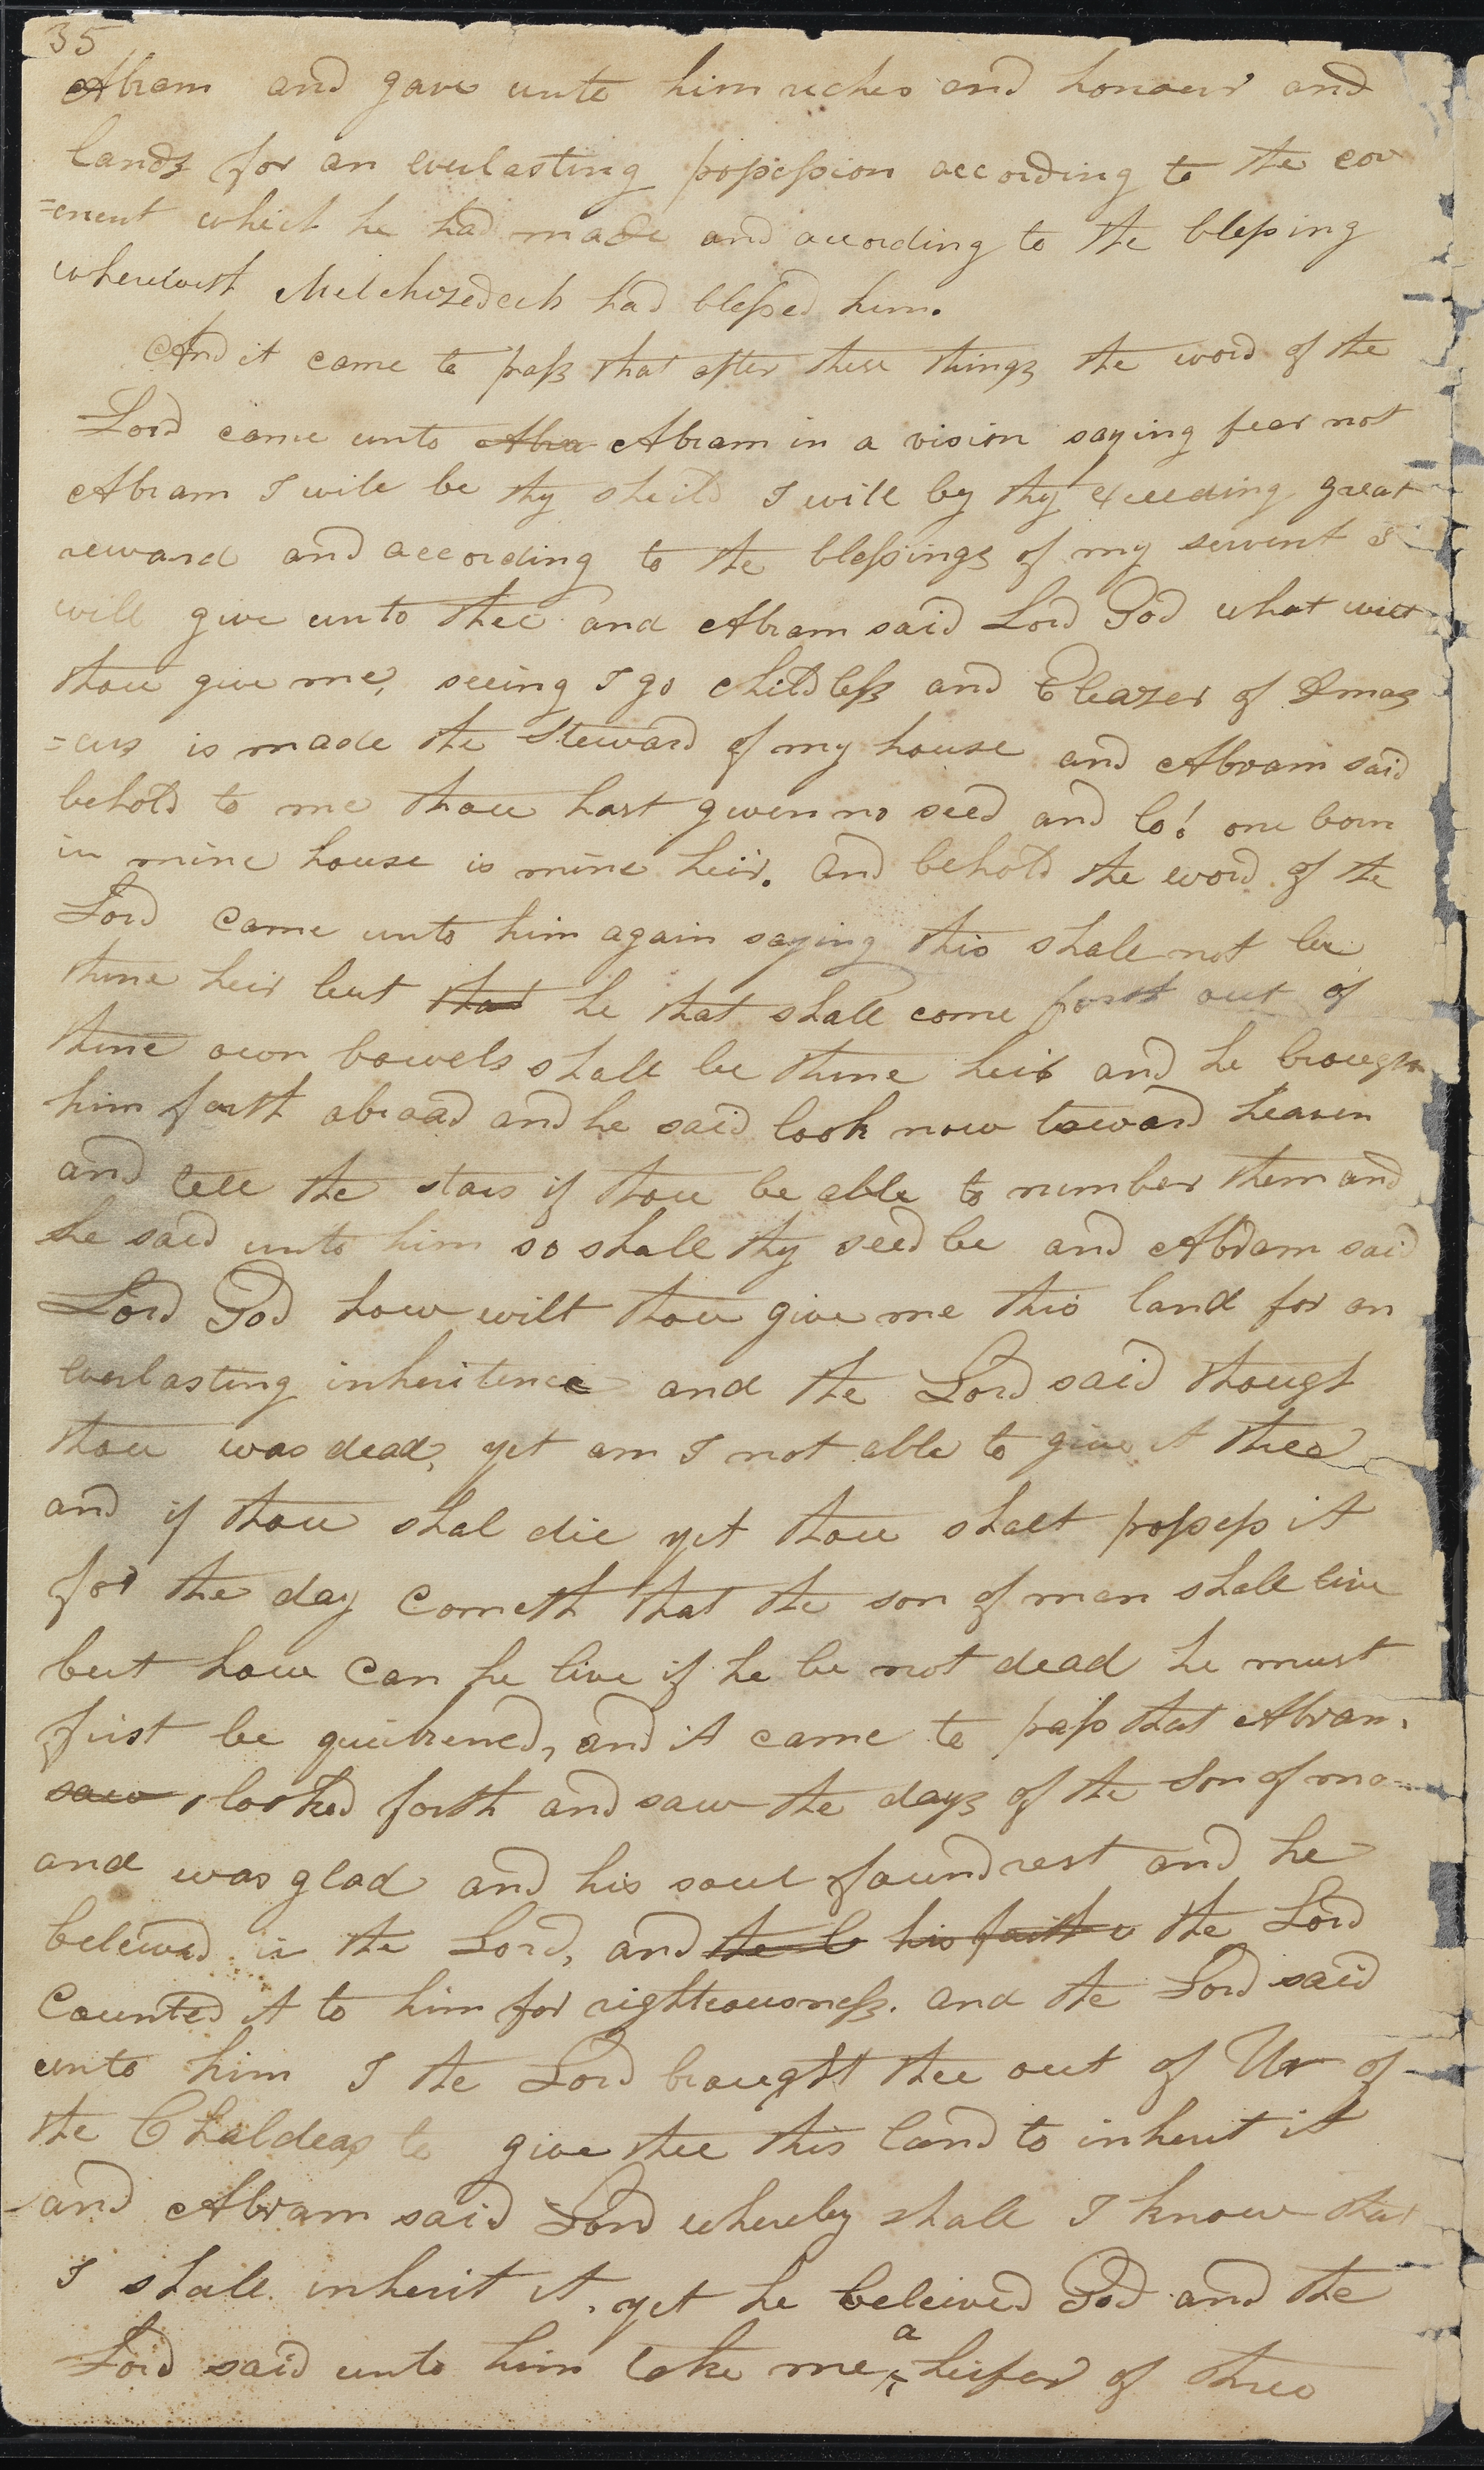 35
Abram and gave unto him riches and honour and
lands for an everlasting possession according to the cov
=enent which he had made and according to the blessing
wherewith Melchizedeck had blessed him.
And it came to pass that after these things the word of the
Lord came unto Abra Abram in a vision saying fear not
Abram I will be thy sheild I will by thy exceeding great
reward and according to the blessings of my servent I
will give unto thee and Abram said Lord God what wilt
thou give me, seeing I go childless and Eleazer of Dmas
=cus is made the Steward of my house and Abram said
behold to me thou hast given no seed and lo! one born
in mine house is mine heir. and behold the word of the
Lord came unto him again saying this shall not be
thine heir but that he that shall come forth out of
thine own bowels shall be thine heir and he brough
him forth abroad and he said look now toward heaven
and tell the stars if thou be able to number them and
he said unto him so shall thy seed be and Abram said
Lord God how wilt thou give me this land for an
everlasting inheritence and the Lord said though
thou was dead, yet am I not able to give it thee
and if thou shal die yet thou shalt possess it
for the day cometh that the son of man shall live
but how can he live if he be not dead he must
first be quickened, and it came to pass that Abram
saw looked forth and saw the days of the Son of ma
and was glad and his soul found rest and he
beleived in the Lord, and the L his faith the Lord
Counted it to him for righteousness. and the Lord said
unto him I the Lord brought thee out of Ur of
the Chaldeas to give thee this land to inherit it
and Abram said Lord whereby shall I know that
I shall inherit it, yet he beleived God and the
Lord said unto him take me a heifer of three